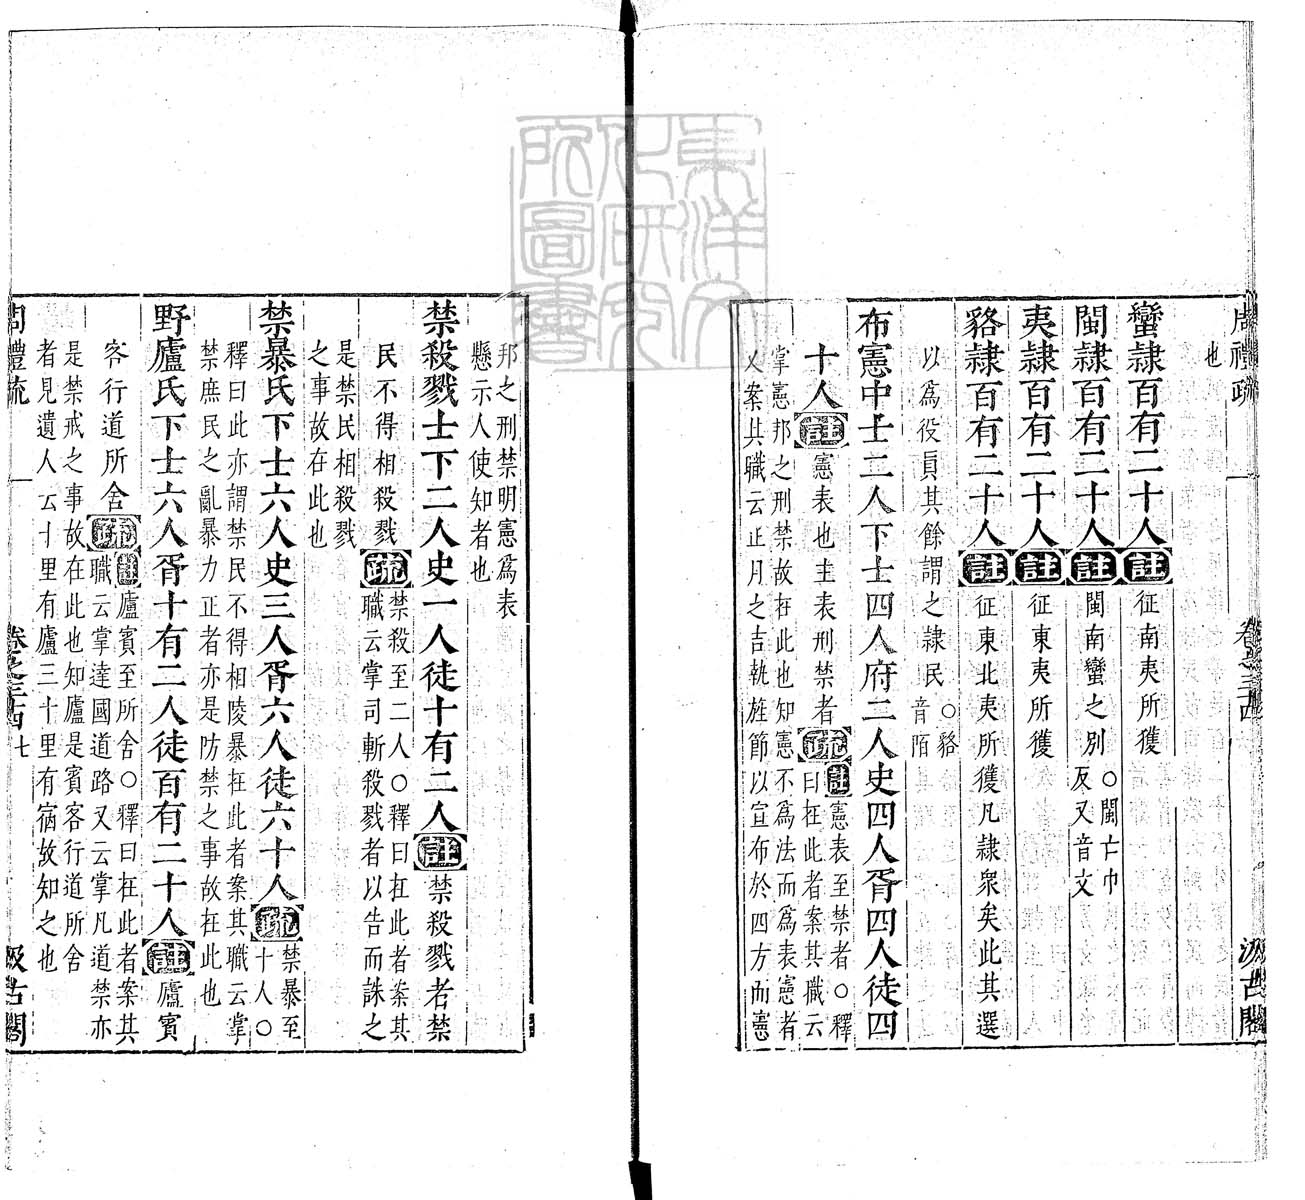 周禮疏
卷之三十四
汲古閣
也
蠻隷百有二十人註征南夷所獲
閩隷百有二十人註閩南蠻之別○閩亡巾
反又音文
夷隷百有二十人註征東夷所獲
貉隷百有二十人註征東北夷所獲凡隷衆矣此其選
以爲役員其餘謂之隷民○貉
音陌
布憲中士二人下士四人府二人史四人胥四人徒四
十人註憲表也主表刑禁者疏註憲表至禁者○釋
曰在此者案其職云
掌憲邦之刑禁故在此也知憲不爲法而爲表憲者
又案其職云正月之吉執旌節以宣布於四方而憲
邦之刑禁明憲爲表
懸示人使知者也
禁殺戮士下二人史一人徒十有二人註禁殺戮者禁
民不得相殺戮疏禁殺至二人○釋曰在此者案其
職云掌司斬殺戮者以告而誅之
是禁民相殺戮
之事故在此也
禁暴氏下士六人史三人胥六人徒六十人疏禁暴至
十人○
釋曰此亦謂禁民不得相陵暴在此者案其職云掌
禁庶民之亂暴力正者亦是防禁之事故在此也
野廬氏下士六人胥十有二人徒百有二十人註廬賓
客行道所舍疏註廬賓至所舍○釋曰在此者案其
職云掌達國道路又云掌凡道禁亦
是禁戒之事故在此也知廬是賓客行道所舍
者見遺人云十里有廬三十里有宿故知之也
周禮疏
卷之三十四
七
汲古閣
東洋文化研究所圖書